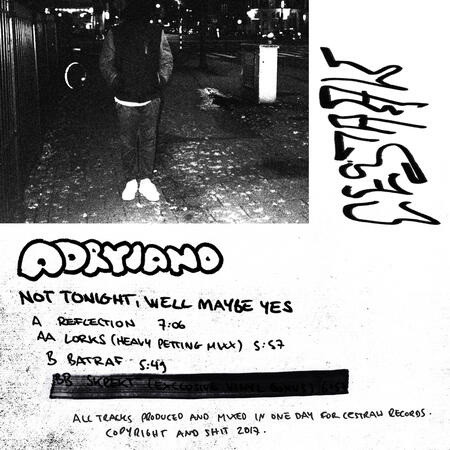 ADRYIANO
NOT TONIGHT, WELL MAYBE YES
A REFLECTION 7:06
AA LORKS (HEAVY PETTING MIXX) 5:57
B BATRAF 5:49
BB (EXCLUSIVE VINYL BONUS)
ALL TRACKS PRODUCED AND MIXED IN ONE DAY FOR CESTRAW RECORDS.
COPYRIGHT AND SHIT 2017.